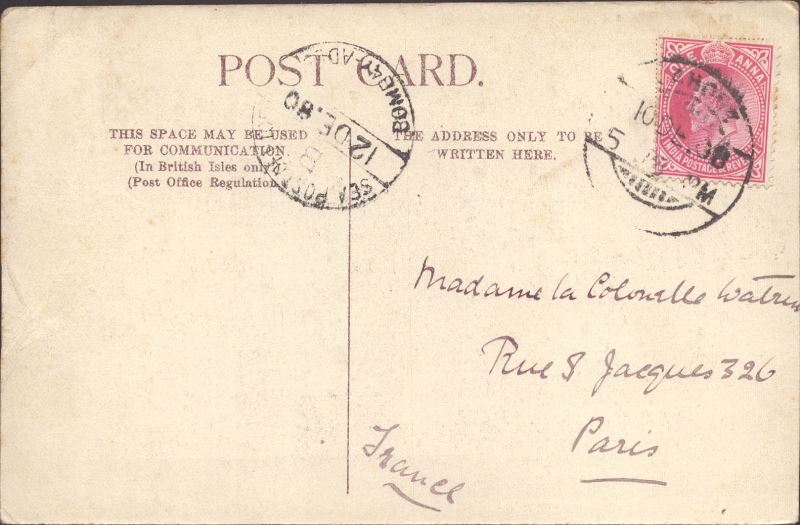 POST CARD.
THIS SPACE MAY BE USED
FOR COMMUNICATION.
(In British Isles only
(Post Office Regulation
THE ADDRESS ONLY TO BE
WRITTEN HERE.
SEA POST
B
12 DE. 08
BOMBAY-AD
ONE ANNA
INDIA POSTAGE & REVENUE
10 DE
Madame la Colonelle
Rue S Jacques 326
Paris
France